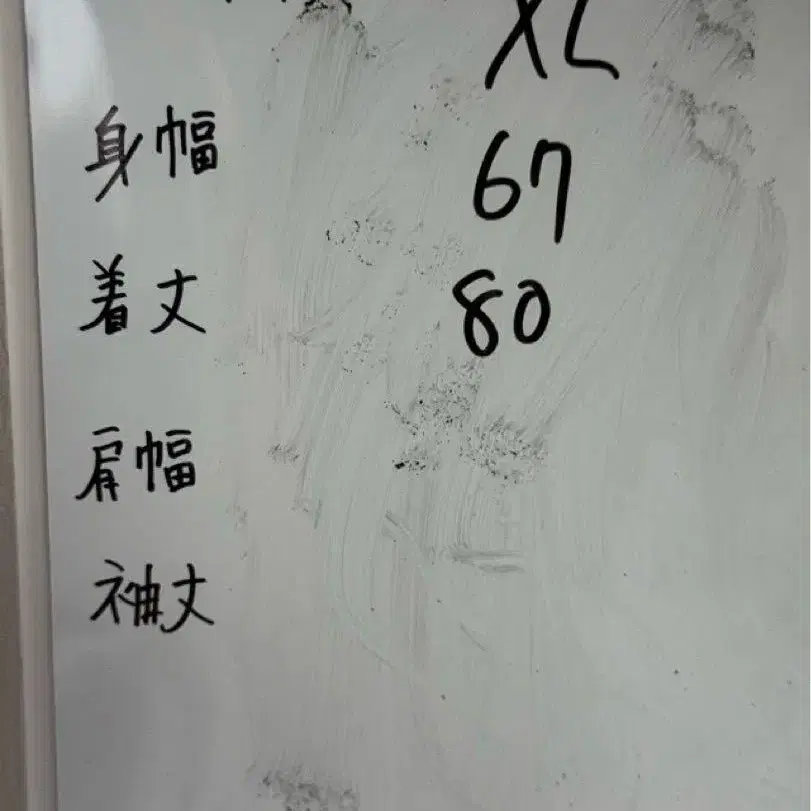 XL
身幅 67
着丈 80
肩幅
袖丈